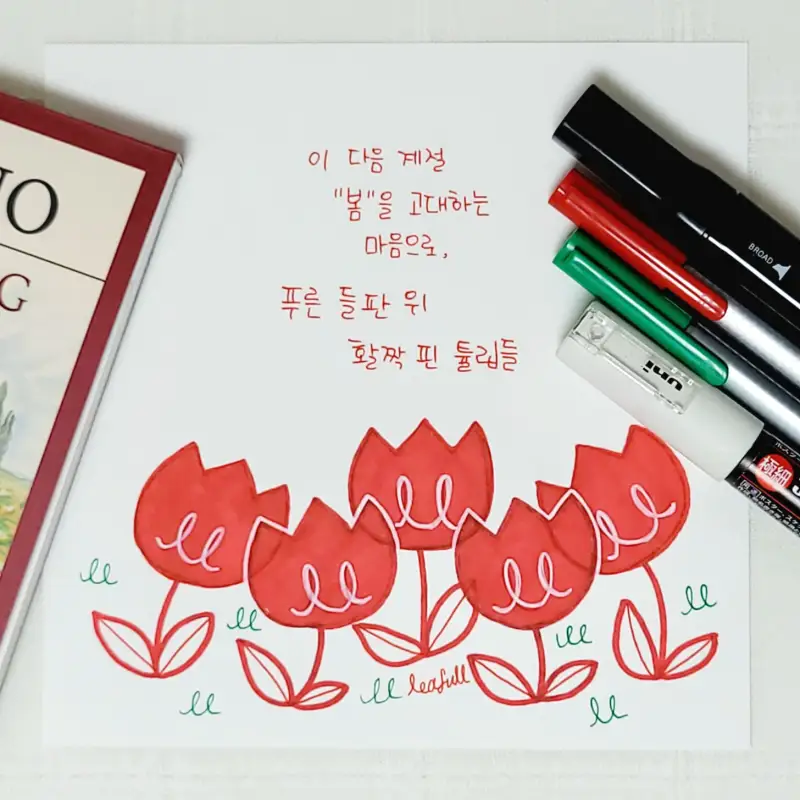 이 다음 계절
"봄"을 고대하는
마음으로,
푸른 들판 위
활짝 핀 튤립들
leafull
BROAD
uni
極細
G